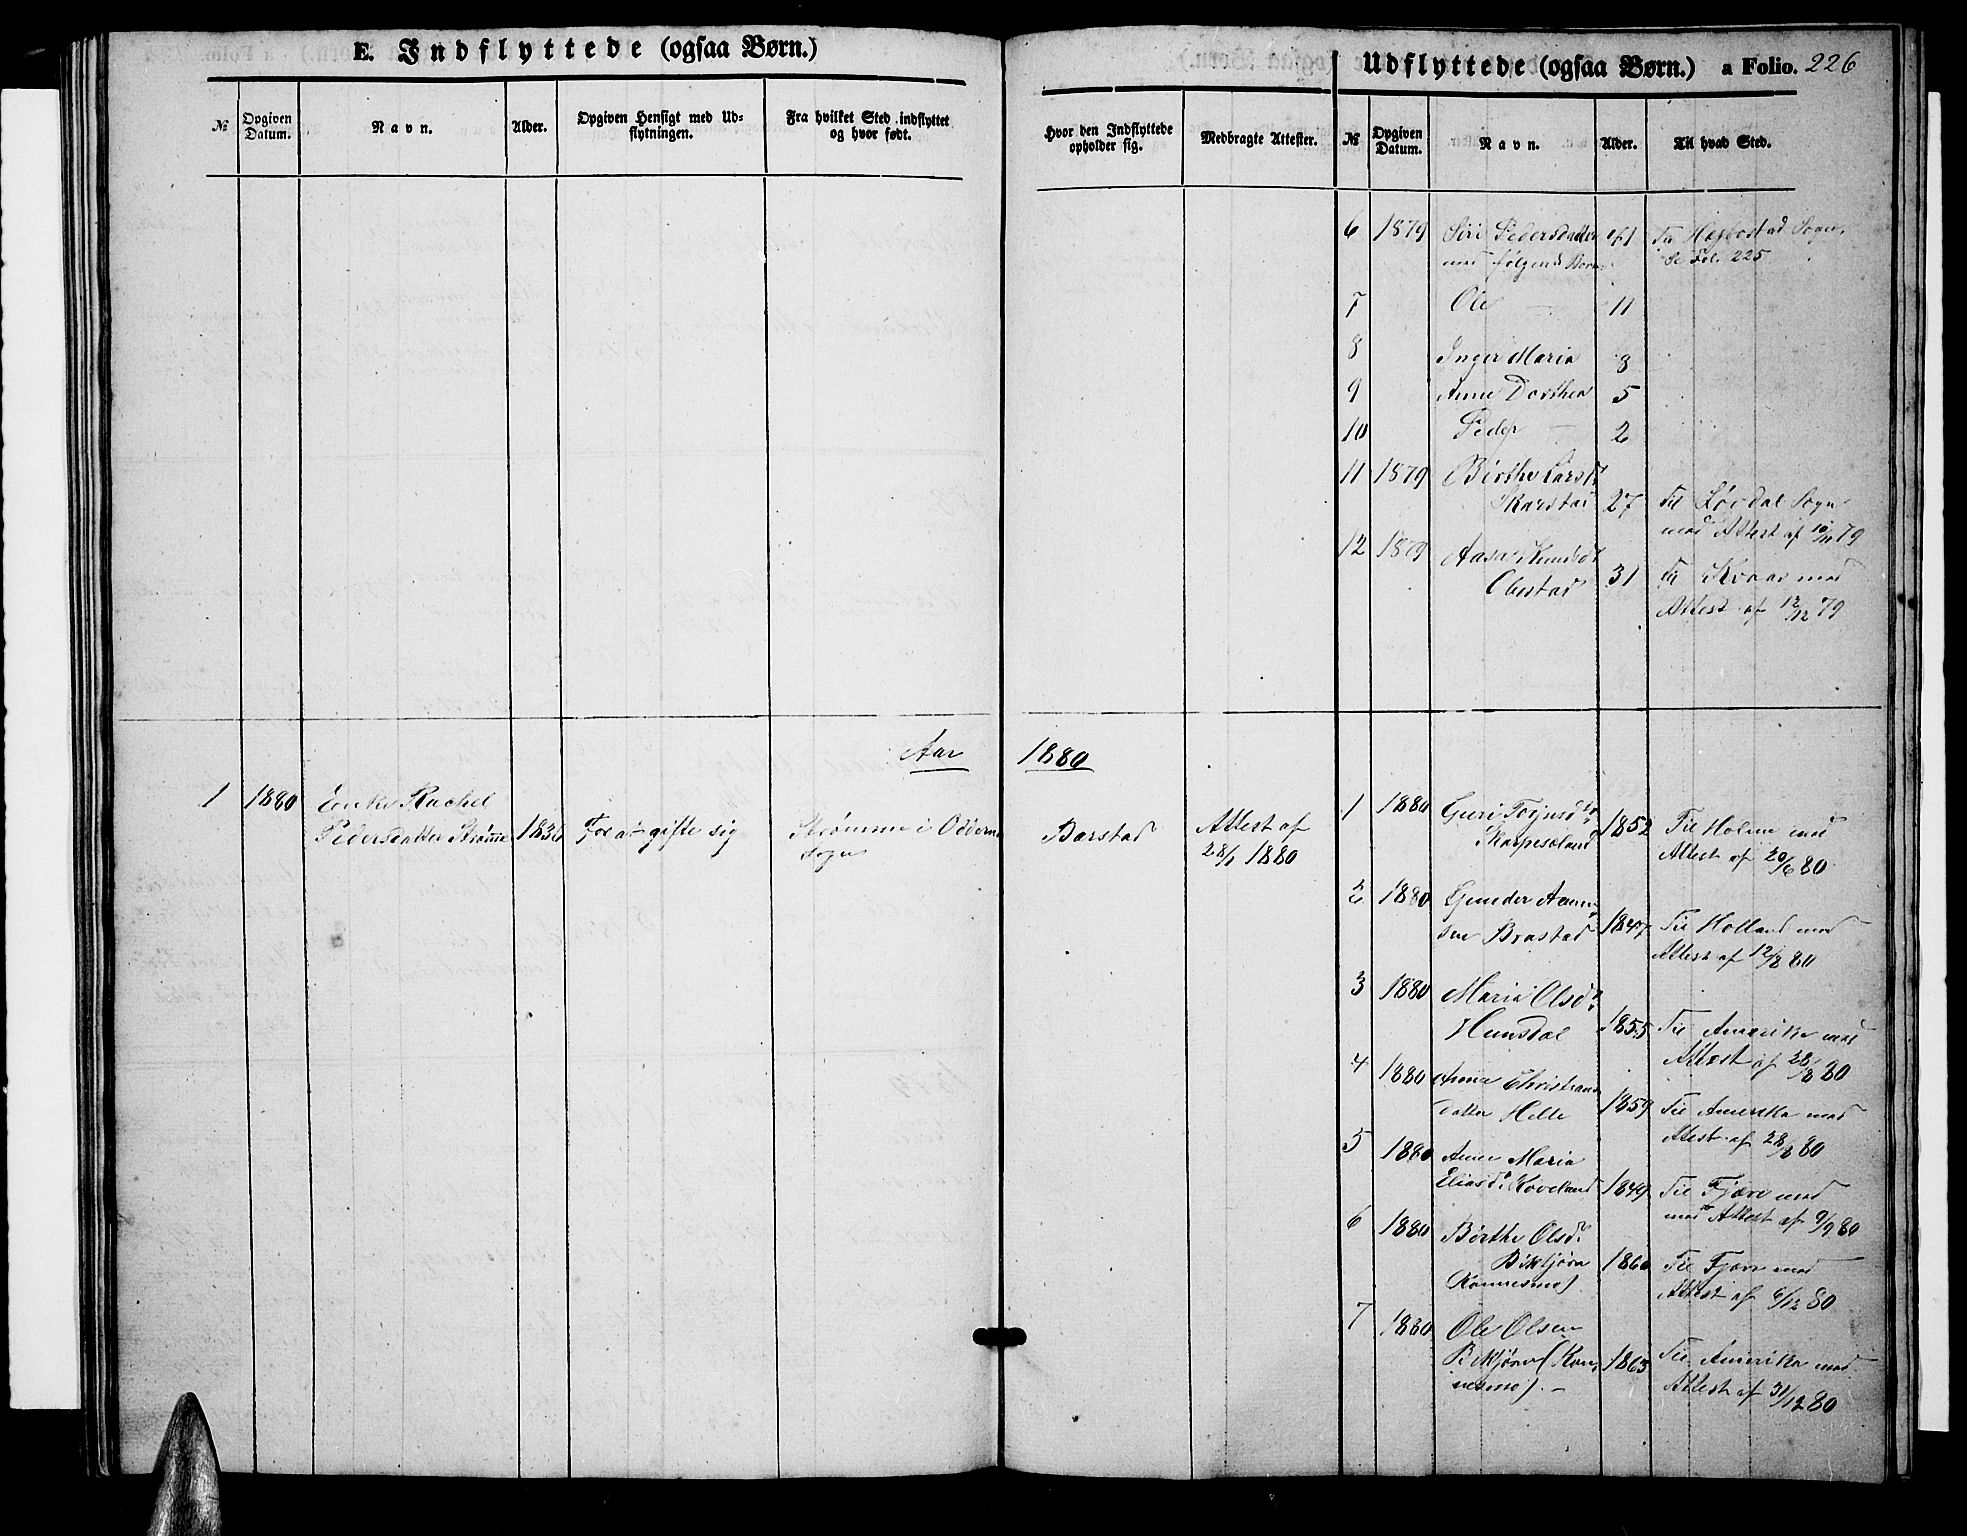 E. Indflyttede (ogsaa Børn.)
Udflyttede (ogsaa Børn.) a Folio. 226
№
Opgiven Datum.
Navn.
Alder.
Opgiven Hensigt med Ud-
flytningen.
Fra hvilket Sted indflyttet
og hvor født.
Hvor den Indflyttede
opholder sig.
Medbragte Attester.
№
Opgiven Datum.
Navn.
Alder.
Til hvad Sted.
6 1879 Siri Pedersdatter 41 Til Hægbostad Sogn,
med følgende Børn: Se Fol. 225
7 Ole — 11
8 Inger Maria 8
9 Anne Dorthea 5
10 Peder — 2
11 1879 Birthe Larsd.
Skarstad 27 Til Sogn
med Attest af 10/11 79
12 1879 Aasa
31 Til med
Attest af 12/12 79
Aar 1880
1 1880 Rachel
Pedersdatter Strømme 1836 For at gifte sig Strømme i Oddernes
Sogn
Barstad
Attest af
28/1 1880
1 1880 Guri
1852 Til Holme med
Attest af 20/6 80
2 1880 Gunder
sen Brastad 1847 Til Holland med
Attest af 12/8 80
3 1880 Maria Olsdr.
Hunsdal 1855 Til Amerika med
Attest af 28/8 80
4 1880 Anne Christians
datter Helle 1859 Til Amerika med
Attest af 28/8 80
5 1880 Anne Maria
Eliasd. Koveland 1849 Til Fjære med
med Attest af 9/9 80
6 1880 Børthe Olsdr.
Biktjørn 1860 Til Fjære med
Attest af 6/12 80
7 1880 Ole Olsen
Biktjørn (Kon- 1863 Til Amerika med
nesmo). — Attest af 31/12 80